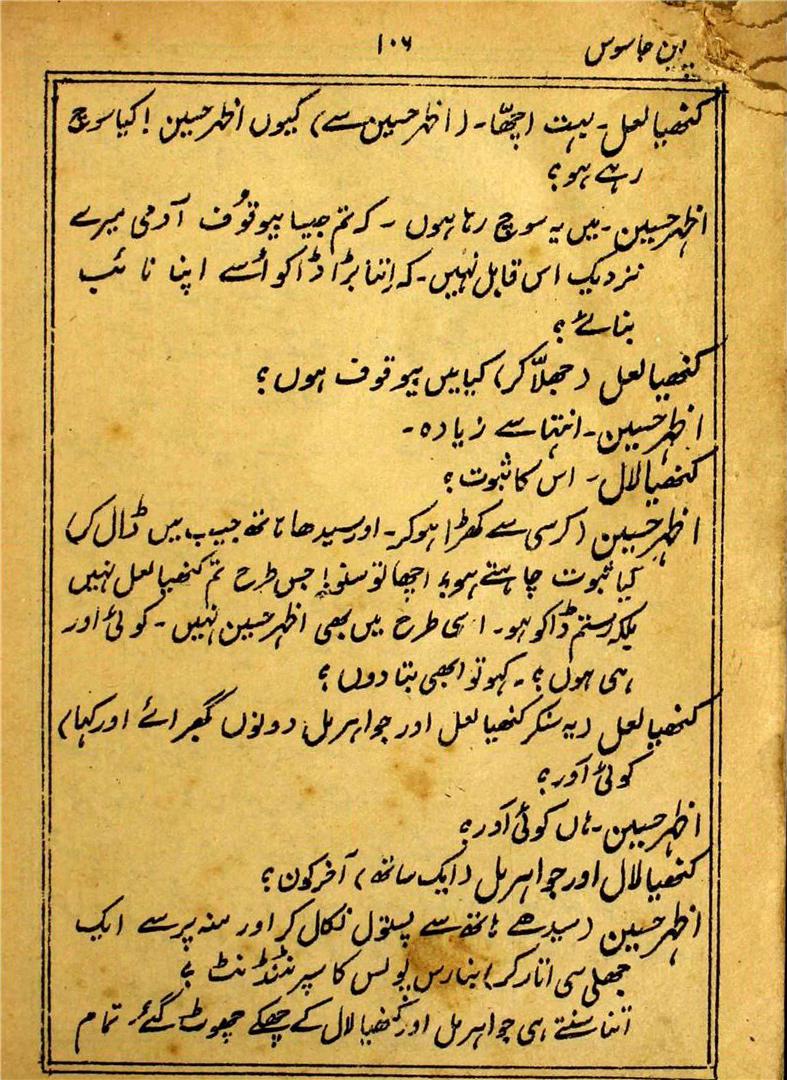 ۱۰۶
جاسوس
کنھیا لعل۔ بہت اچھّا۔ (اظہر حسین سے) کیوں اظہر حسین! کیا سوچ
رہے ہو؟
اظہر حسین۔ میں یہ سوچ رہا ہوں ۔ کہ تم جیسا بیوقوُف آدمی میرے
نزدیک اس قابل نہیں۔ کہ اِتنا بڑا ڈاکو اُسے اپنا نائب
بنائے؟
کنھیا لعل (جھلّا کر) کیا میں بیوقوف ہوں؟
اظہر حسین۔ انتہا سے زیادہ۔
کنھیا لال۔ اس کا ثبوت؟
اظہر حسین (کرسی سے کھڑا ہو کر۔ اور سیدھا ہاتھ جیب میں ڈال کر)
کیا ثبوت چاہتے ہو؟ اچھا تو سنو! جس طرح تم کنھیا لعل نہیں
بلکہ رستم ڈاکو ہو۔ اسی طرح میں بھی اظہر حسین نہیں۔ کوئی اور
ہی ہوں؟۔ کہو تو ابھی بتا دوں؟
کنھیا لعل (یہ سنکر کنھیا لعل اور جواہر مل دونوں گھبرائے اور کہا)
کوئی اَور؟
اظہر حسین۔ ہاں کوئی اَور؟
کنھیا لال اور جواہر مل (ایک ساتھ) آخر کون؟
اظہر حسین (سیدھے ہاتھ سے پستول نکال کر اور منہ پر سے ایک
جھلی سی اتار کر) بنارس پولس کا سپرنٹنڈنٹ؟
اتنا سنتے ہی جواہر مل اور کنھیا لال کے چھکے چھوٹ گئے تمام